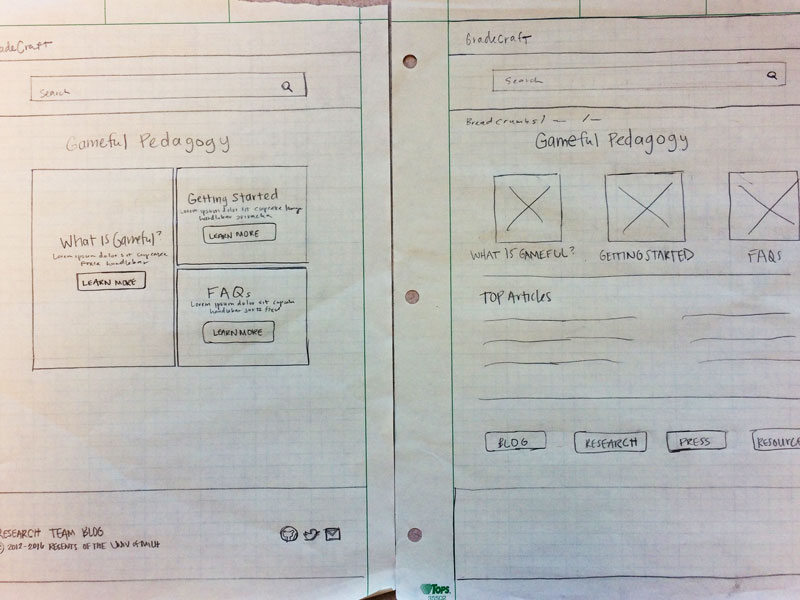 adeCraft
Search
Gameful Pedagogy
What Is Gameful?
Lorem ipsum dolor sit cupcake
LEARN MORE
Getting Started
Lorem ipsum dolor sit cupcake
handlebar sriracha
LEARN MORE
FAQs
Lorem ipsum dolor sit
handlebar
LEARN MORE
RESEARCH TEAM BLOG
© 2012-2016 REGENTS OF THE UNIV OF MICH
GradeCraft
Search
Breadcrumbs / — / —
Gameful Pedagogy
WHAT IS GAMEFUL?
GETTING STARTED
FAQs
TOP Articles
BLOG
RESEARCH
PRESS
RESOURCE
TOPS
35502